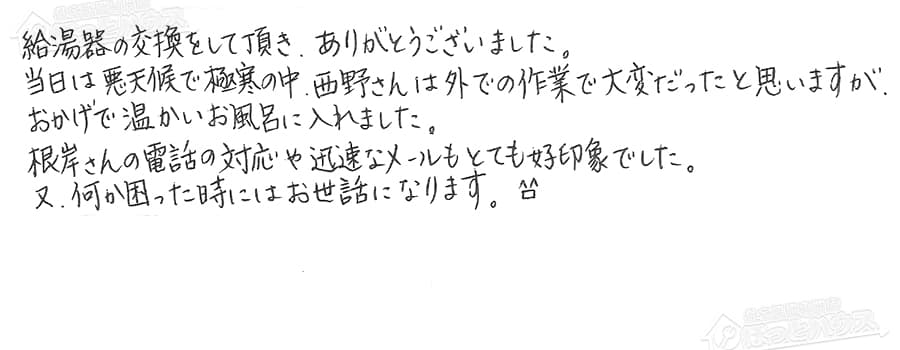 給湯器の交換をして頂き、ありがとうございました。
当日は悪天候で極寒の中、西野さんは外での作業で大変だったと思いますが、
おかげで温かいお風呂に入れました。
根岸さんの電話の対応や迅速なメールもとても好印象でした。
又、何か困った時にはお世話になります。
ほっとハウス